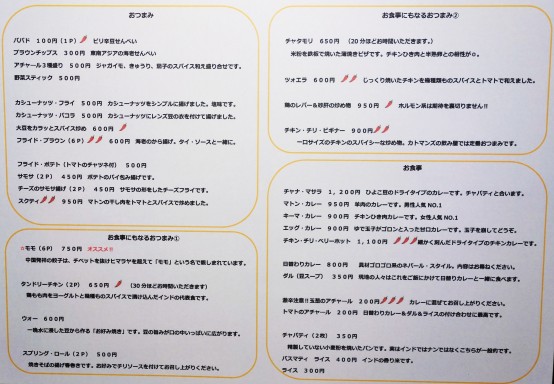 おつまみ
パパド 100円(1P) ピリ辛豆せんべい
プラウンチップス 300円 東南アジアの海老せんべい
アチャール3種盛り 500円 ジャガイモ、きゅうり、茄子のスパイス和え盛り合せです。
野菜スティック 500円
カシューナッツ・フライ 500円 カシューナッツをシンプルに揚げました。塩味です。
カシューナッツ・パコラ 500円 カシューナッツにレンズ豆の衣を付けて揚げました。
大豆をカラッとスパイス炒め 600円
フライド・プラウン(6P) 600円 海老のから揚げ。タイ・ソースと一緒に。
フライド・ポテト(トマトのチャツネ付) 500円
サモサ(2P) 450円 ポテトのパイ包み揚げです。
チーズのサモサ揚げ(2P) 450円 サモサの形をしたチーズフライです。
スクティ 950円 マトンの干し肉をトマトとスパイスで炒めました。
お食事にもなるおつまみ①
☆モモ(6P) 750円 オススメ!!
中国発祥の餃子は、チベットを抜けヒマラヤを超えて「モモ」という名で親しまれています。
タンドリーチキン(2P) 650円 (30分ほどお時間いただきます)
鶏もも肉をヨーグルトと種種ものスパイスで漬け込んだインドの代表食です。
ウォー 600円
一晩水に浸した豆から作る「お好み焼き」です。豆の旨みが口の中いっぱいに広がります。
スプリング・ロール(2P) 500円
焼きそばの揚げ春巻きです。お好みでチリソースを付けてお召し上がりください。
お食事にもなるおつまみ②
チャタモリ 650円 (20分ほどお時間いただきます。)
米粉を鉄板で焼いた薄焼きピザです。チキンひき肉と半熟卵との相性が◎。
ツォエラ 600円 じっくり焼いたチキンを種種類ものスパイスとトマトで和えました。
鶏のレバー&砂肝の炒め物 950円 ホルモン系は期待を裏切りません!!
チキン・チリ・ビギナー 900円
一口サイズのチキンのスパイシーな炒め物。カトマンズの飲み屋では定番おつまみです。
お食事
チャナ・マサラ 1,200円 ひよこ豆のドライタイプのカレーです。チャパティと合います。
マトン・カレー 950円 羊肉のカレーです。男性人気 NO.1
キーマ・カレー 900円 チキンひき肉カレーです。女性人気 NO.1
エッグ・カレー 900円 ゆで玉子がゴロンと入った甘口カレーです。玉子を崩してどうぞ。
チキン・チリ・ベリーホット 1,100円 細かく刻んだドライタイプのチキンカレーです。
日替わりカレー 800円 具材ゴロゴロ系のネパール・スタイル。内容はお尋ねください。
ダル(豆スープ) 350円 現地の人々はこれをご飯にかけて日替りカレーと一緒に食べます。
激辛注意!!玉葱のアチャール 200円 カレーに混ぜてお召し上がりください。
トマトのアチャール 200円 日替わりカレー&ダル&ライスの付け合わせに最高です。
チャパティ(2枚) 350円
精製していない小麦粉を焼いたパンです。実はインドではナンではなくこちらが一般的です。
バスマティ ライス 400円 インドの香り米です。
ライス 300円